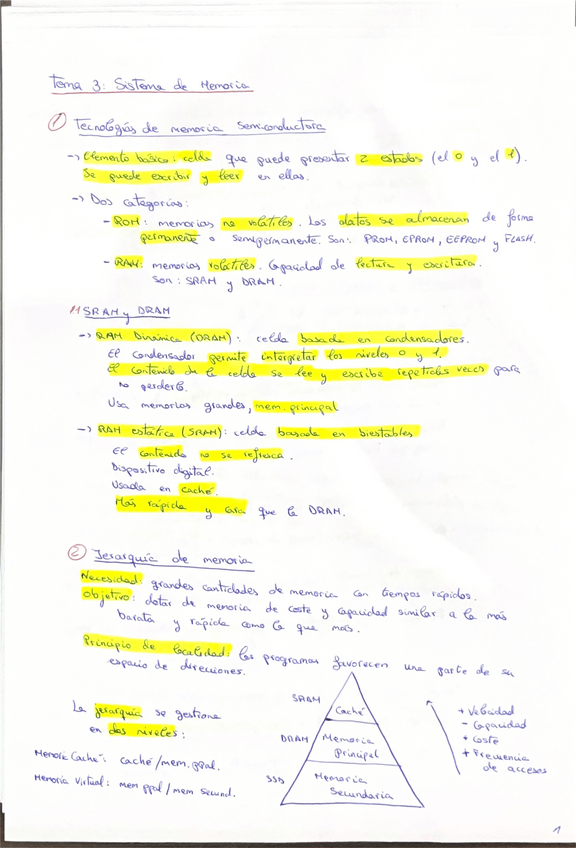 Tema 3: Sistema de Memoria
① Tecnologías de memoria semiconductora
-> Elemento básico: celda que puede presentar 2 estados (el 0 y el 1).
Se puede escribir y leer en ellas.
-> Dos categorías:
- ROM: memorias no volátiles. Los datos se almacenan de forma
permanente o semipermanente. Son: PROM, EPROM, EEPROM y FLASH.
- RAM: memorias volátiles. Capacidad de lectura y escritura.
Son: SRAM y DRAM.
1.1 SRAM y DRAM
-> RAM Dinámica (DRAM): celda basada en condensadores.
El condensador permite interpretar los niveles 0 y 1.
El contenido de la celda se lee y escribe repetidas veces para
no perderlo.
Usa memorias grandes, mem. principal
-> RAM estática (SRAM): celda basada en biestables
El contenido no se refresca.
Dispositivo digital.
Usada en caché.
Más rápida y cara que la DRAM.
② Jerarquía de memoria
Necesidad: grandes cantidades de memoria con tiempos rápidos.
Objetivo: dotar de memoria de coste y capacidad similar a la más
barata y rápida como la que más.
Principio de localidad: los programas favorecen una parte de su
espacio de direcciones.
La jerarquía se gestiona
en dos niveles:
Memoria Caché: caché/mem. ppal.
Memoria Virtual: mem ppal/mem secund.
SRAM
Caché
DRAM
Memoria
Principal
SSD
Memoria
Secundaria
+ Velocidad
- Capacidad
+ Coste
+ Frecuencia
de accesos
1